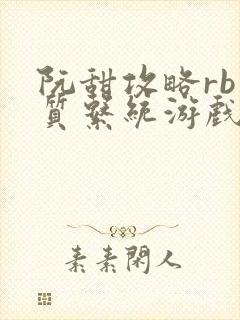 阮甜攻略rb
質繫統游戲
素素閑人